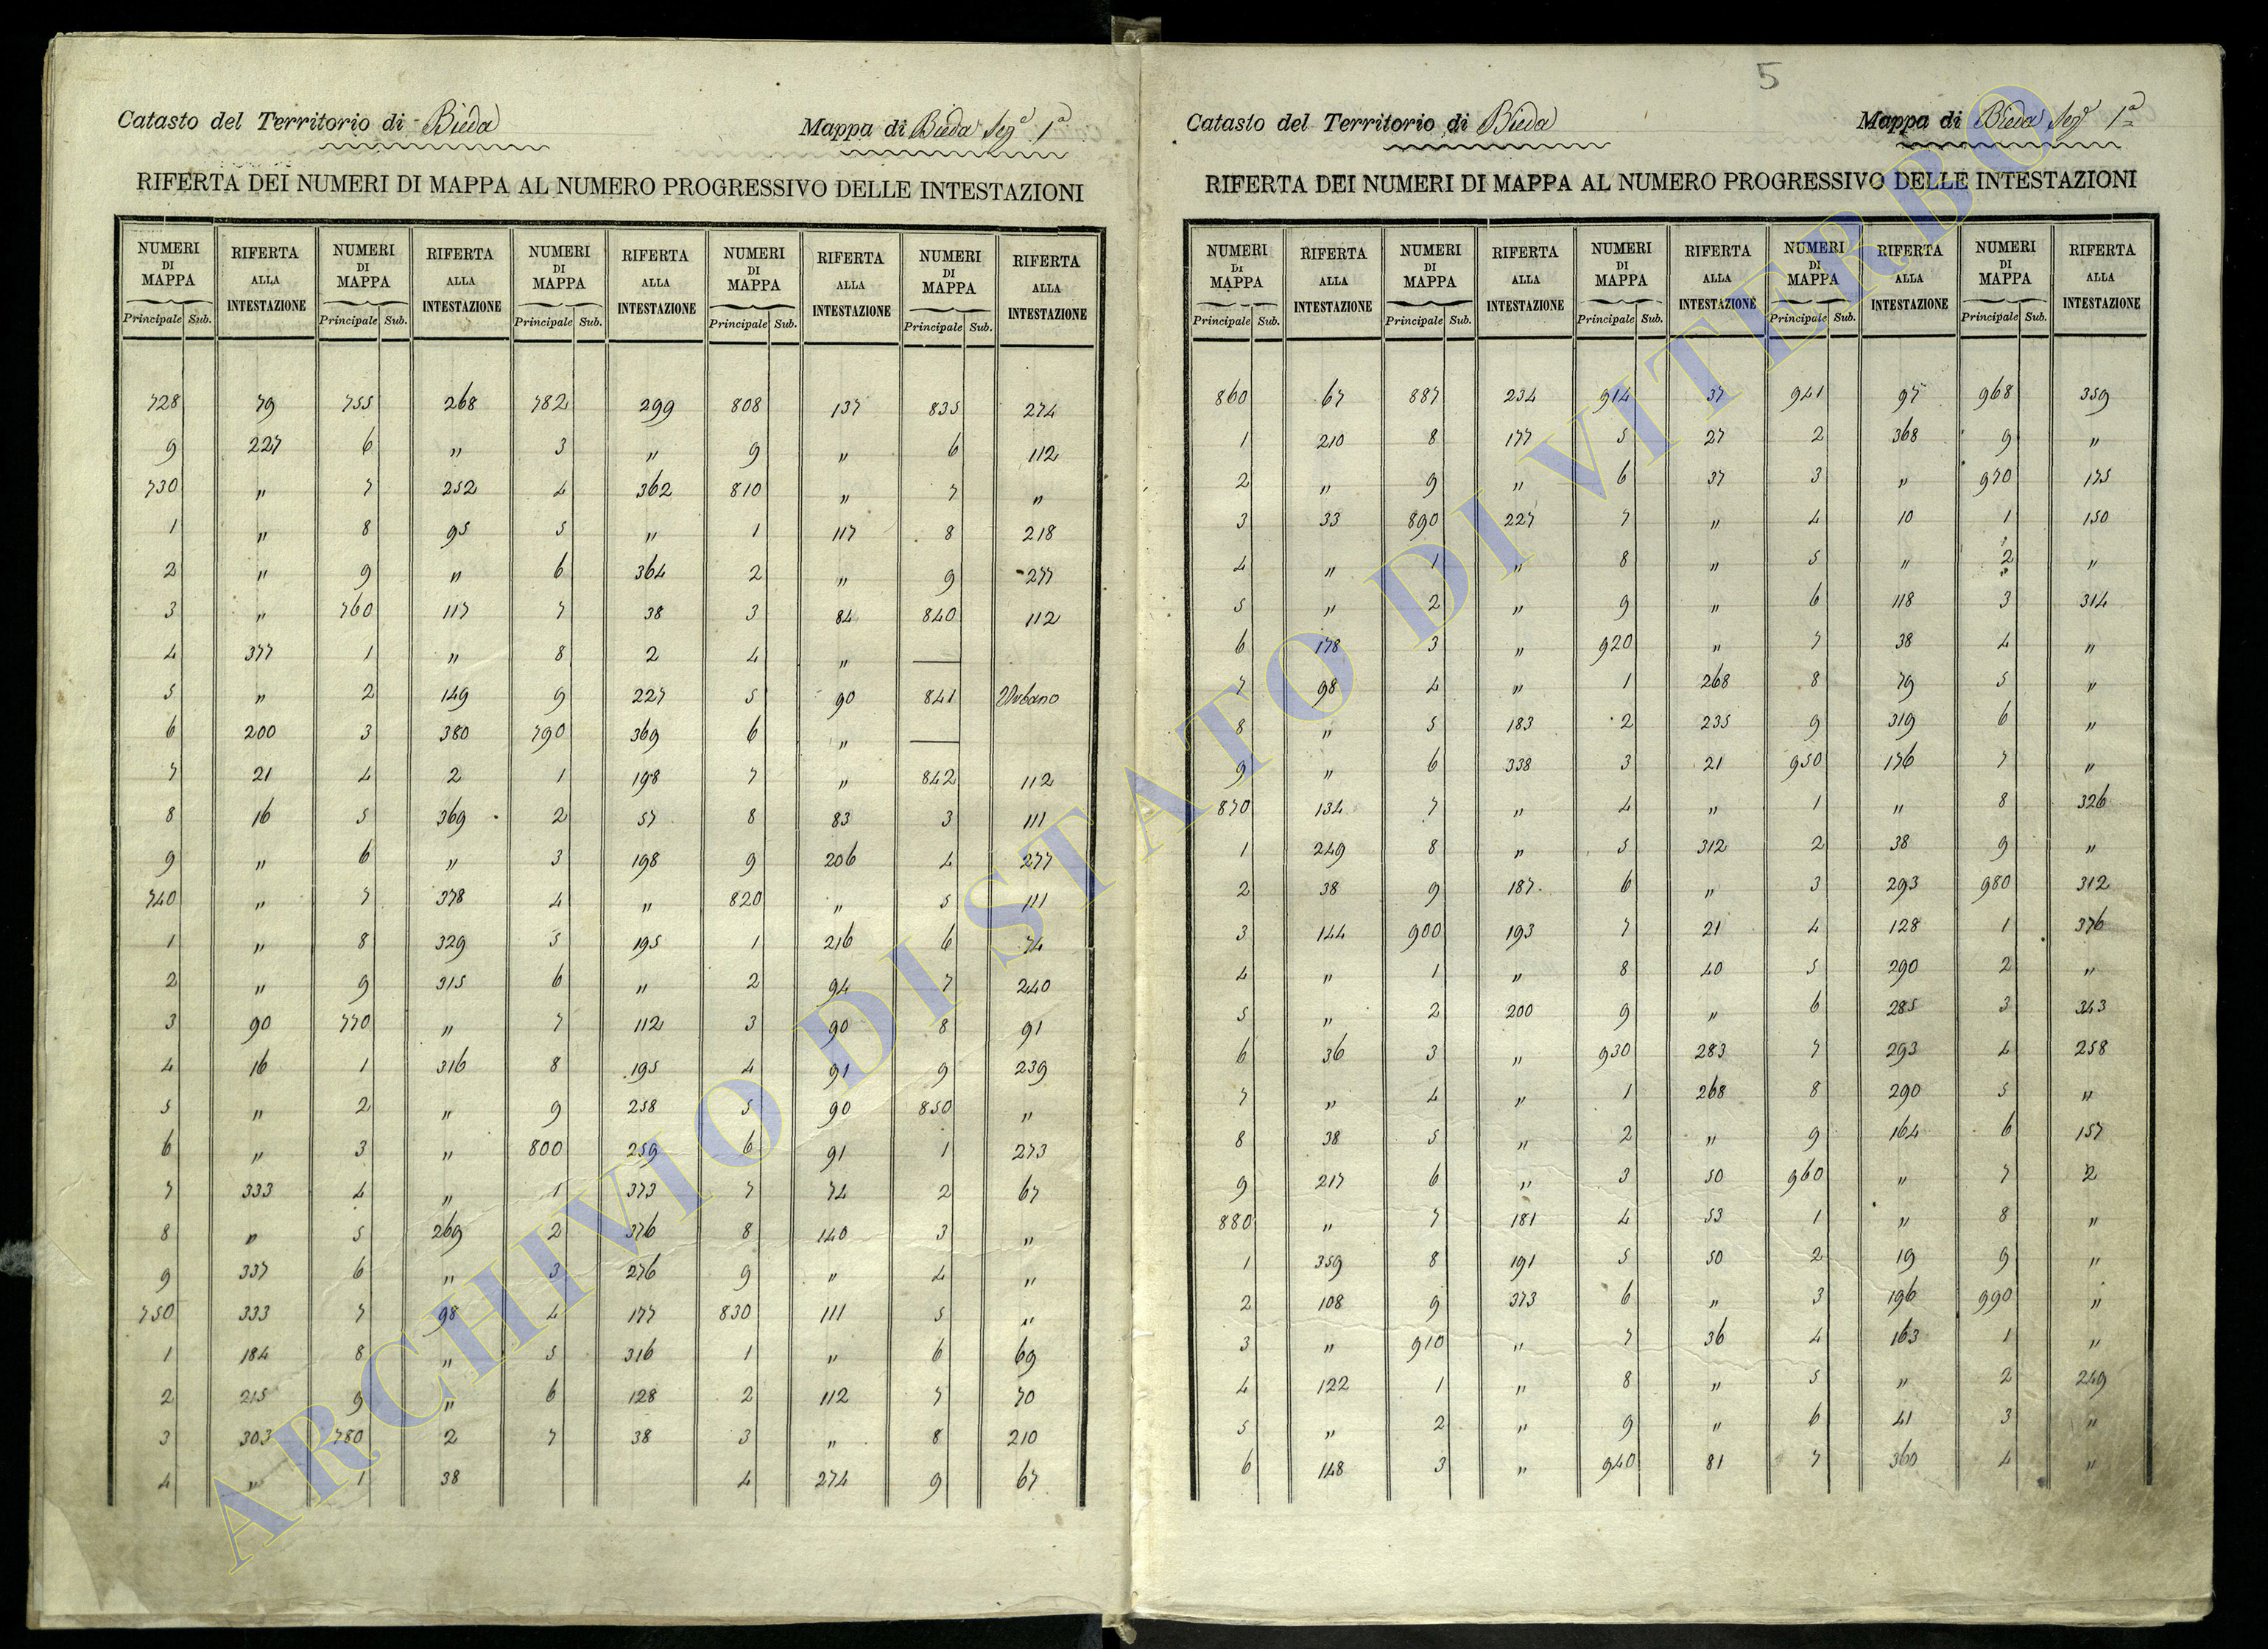 5
Catasto del Territorio di Bieda Mappa di Bieda Sezᵉ 1ª
RIFERTA DEI NUMERI DI MAPPA AL NUMERO PROGRESSIVO DELLE INTESTAZIONI
NUMERI DI MAPPA RIFERTA ALLA INTESTAZIONE NUMERI DI MAPPA RIFERTA ALLA INTESTAZIONE NUMERI DI MAPPA RIFERTA ALLA INTESTAZIONE NUMERI DI MAPPA RIFERTA ALLA INTESTAZIONE NUMERI DI MAPPA RIFERTA ALLA INTESTAZIONE
Principale Sub. Principale Sub. Principale Sub. Principale Sub. Principale Sub.
728 79 755 268 782 299 808 137 835 274
9 227 6 " 3 " 9 " 6 112
730 " 7 252 4 362 810 " 7 "
1 " 8 95 5 " 1 117 8 218
2 " 9 " 6 364 2 " 9 277
3 " 760 117 7 38 3 84 840 112
4 377 1 " 8 2 4 " —
5 " 2 149 9 227 5 90 841 Urbano
6 200 3 380 790 369 6 " —
7 21 4 2 1 198 7 " 842 112
8 16 5 369 2 57 8 83 3 111
9 " 6 " 3 198 9 206 4 277
740 " 7 378 4 " 820 " 5 111
1 " 8 329 5 195 1 216 6 74
2 " 9 315 6 " 2 94 7 240
3 90 770 " 7 112 3 90 8 91
4 16 1 316 8 195 4 91 9 239
5 " 2 " 9 258 5 90 850 "
6 " 3 " 800 259 6 91 1 273
7 333 4 " 1 373 7 74 2 67
8 " 5 269 2 376 8 140 3 "
9 337 6 " 3 276 9 " 4 "
750 333 7 98 4 177 830 111 5 "
1 184 8 " 5 316 1 " 6 69
2 215 9 " 6 128 2 112 7 70
3 303 780 2 7 38 3 " 8 210
4 " 1 38 4 274 9 67
Catasto del Territorio di Bieda Mappa di Bieda Sezᵉ 1ª
RIFERTA DEI NUMERI DI MAPPA AL NUMERO PROGRESSIVO DELLE INTESTAZIONI
NUMERI DI MAPPA RIFERTA ALLA INTESTAZIONE NUMERI DI MAPPA RIFERTA ALLA INTESTAZIONE NUMERI DI MAPPA RIFERTA ALLA INTESTAZIONE NUMERI DI MAPPA RIFERTA ALLA INTESTAZIONE NUMERI DI MAPPA RIFERTA ALLA INTESTAZIONE
Principale Sub. Principale Sub. Principale Sub. Principale Sub. Principale Sub.
860 67 887 234 914 37 941 97 968 359
1 210 8 177 5 27 2 368 9 "
2 " 9 " 6 37 3 " 970 175
3 33 890 227 7 " 4 10 1 150
4 " 1 " 8 " 5 " 2 "
5 " 2 " 9 " 6 118 3 314
6 178 3 " 920 " 7 38 4 "
7 98 4 " 1 268 8 79 5 "
8 " 5 183 2 235 9 319 6 "
9 " 6 338 3 21 950 176 7 "
870 134 7 " 4 " 1 " 8 326
1 249 8 " 5 312 2 38 9 "
2 38 9 187 6 " 3 293 980 312
3 144 900 193 7 21 4 128 1 376
4 " 1 " 8 40 5 290 2 "
5 " 2 200 9 " 6 285 3 343
6 36 3 " 930 283 7 293 4 258
7 " 4 " 1 268 8 290 5 "
8 38 5 " 2 " 9 164 6 157
9 217 6 " 3 50 960 " 7 2
880 " 7 181 4 53 1 " 8 "
1 359 8 191 5 50 2 19 9 "
2 108 9 373 6 " 3 196 990 "
3 " 910 " 7 36 4 163 1 "
4 122 1 " 8 " 5 " 2 249
5 " 2 " 9 " 6 41 3 "
6 148 3 " 940 81 7 360 4 "
ARCHIVIO DI STATO DI VITERBO